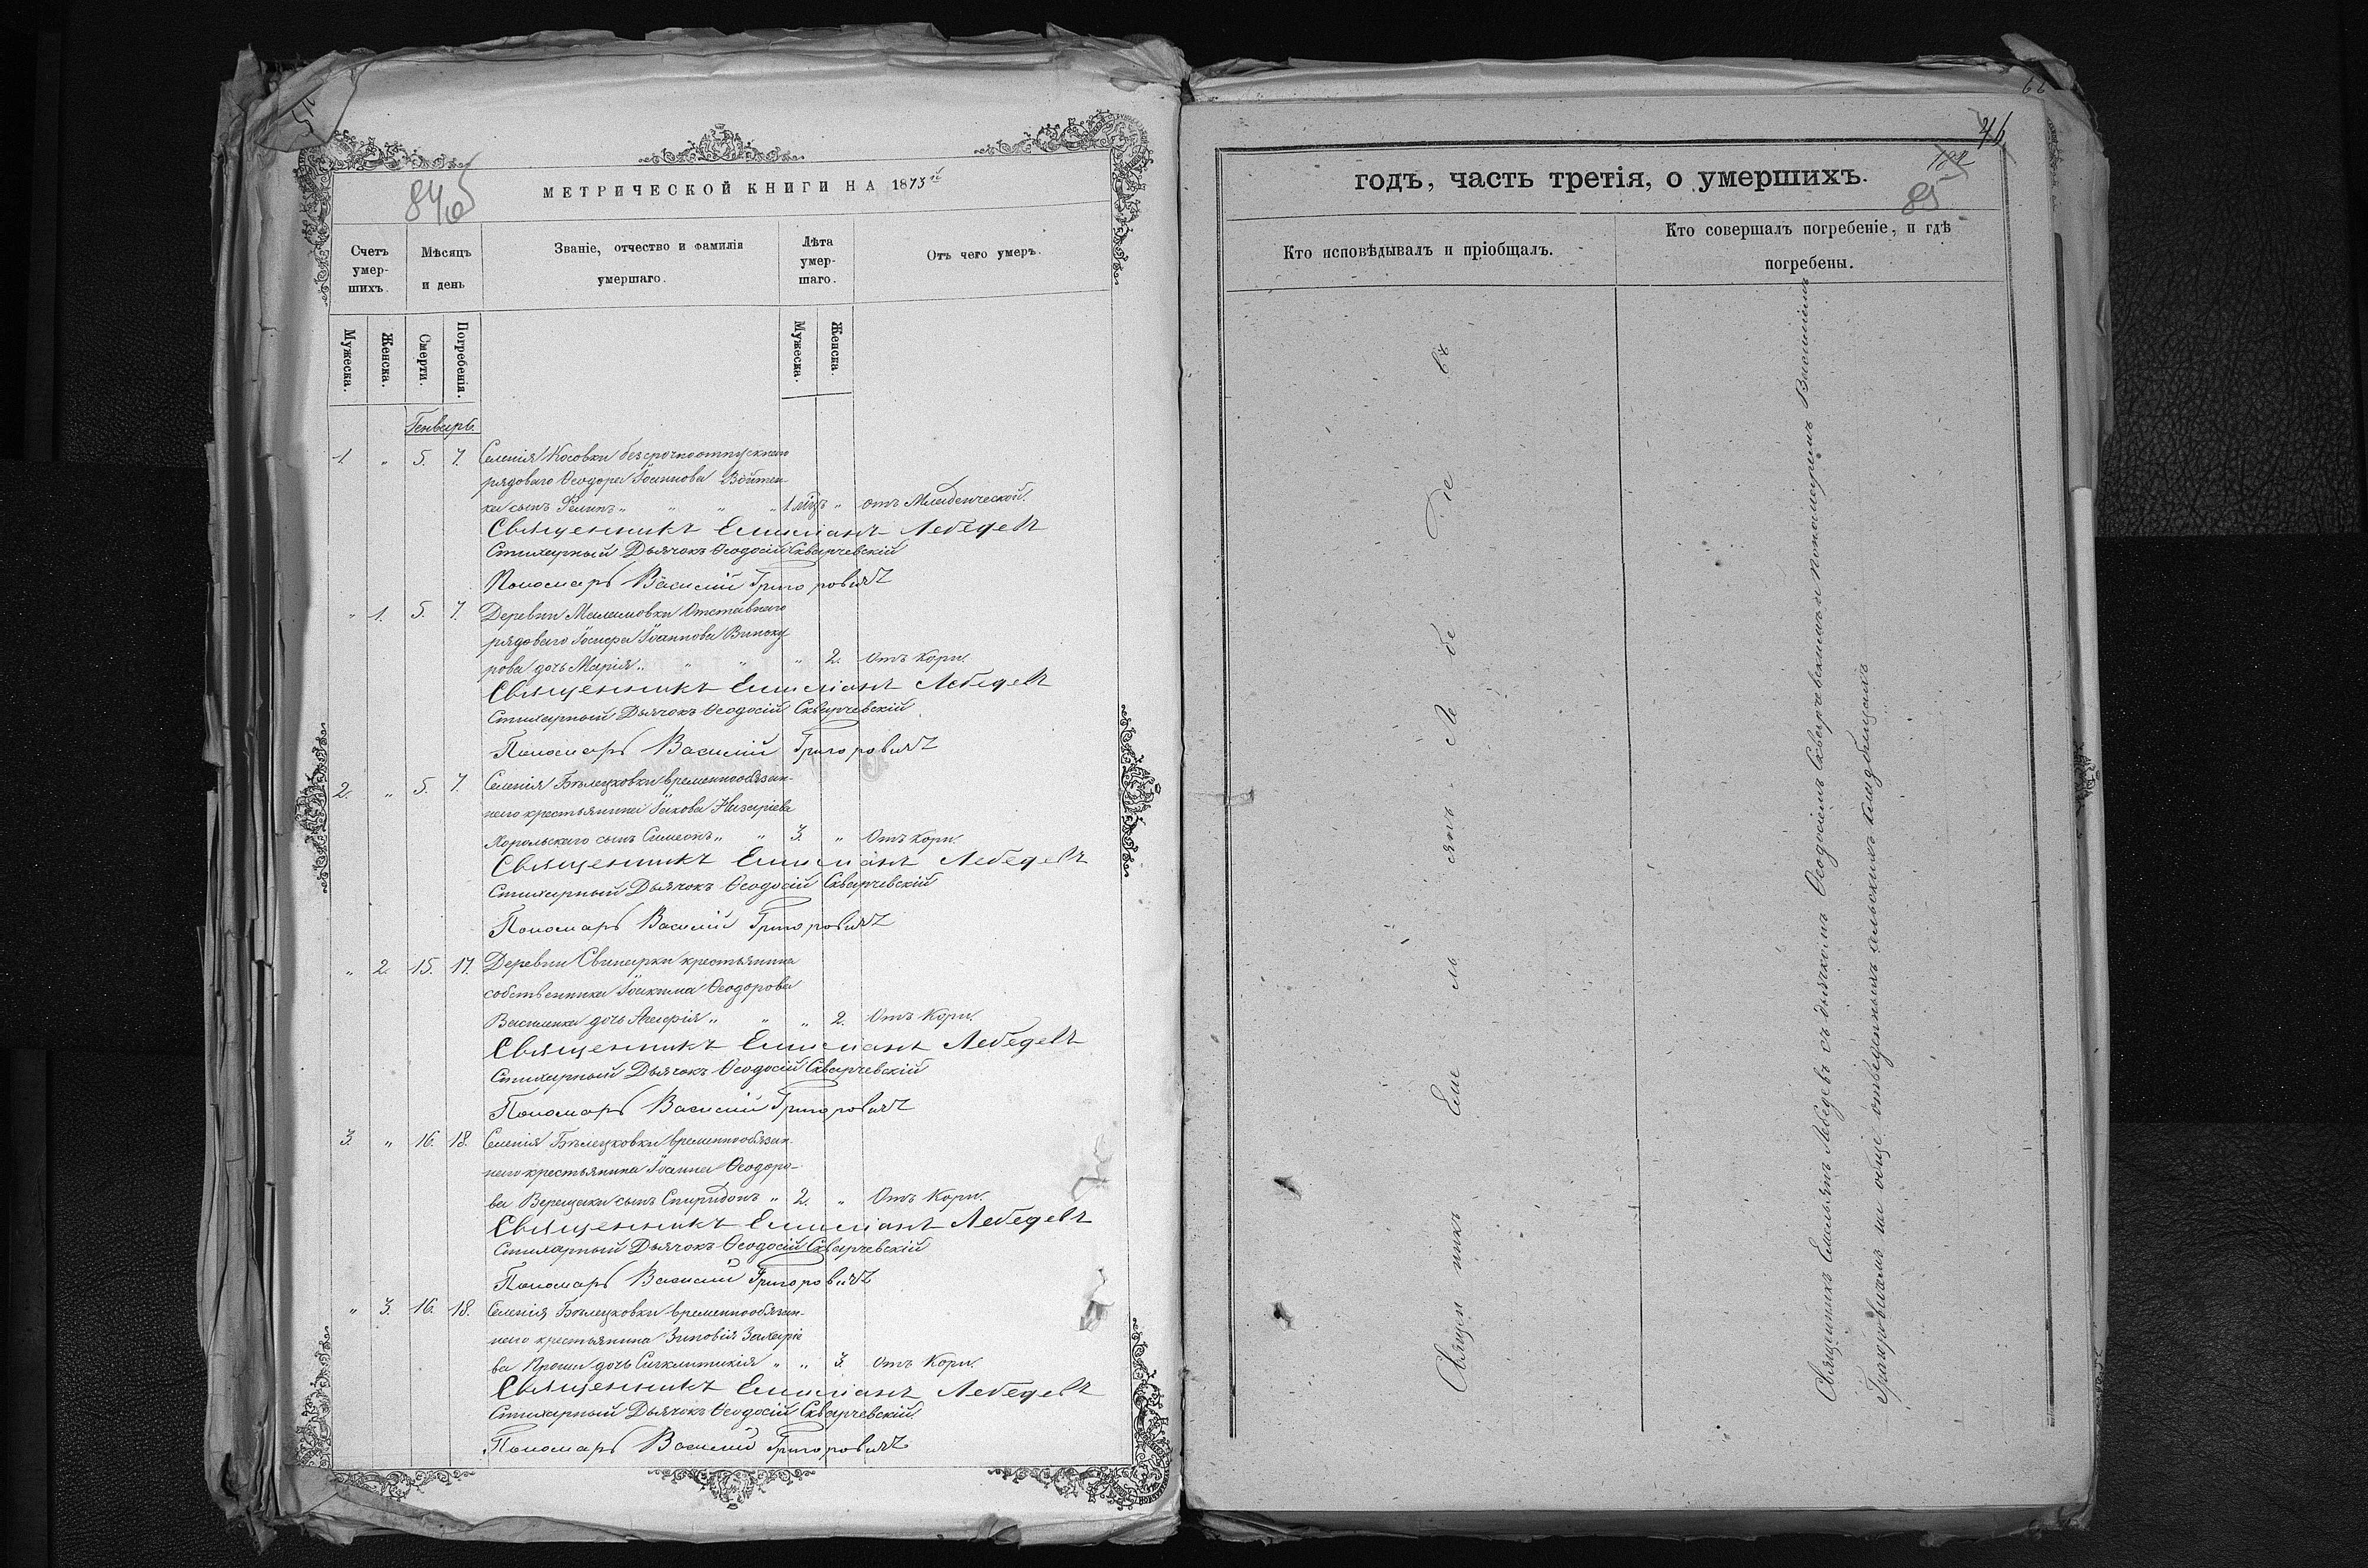 МЕТРИЧЕСКОЙ КНИГИ НА 1873й
Счетъ умер-шихъ.
Мѣсяцъ и день
Званіе, отчество и фамилія умершаго.
Лѣта умер-шаго.
Отъ чего умеръ.
Мужеска.
Женска.
Смерти.
Погребенія.
Мужеска.
Женска.
Генварь.
1. " 5. 7. Селенія Косовки безсрочноотпускнаго
рядоваго Ѳеодора Іоаннова Войтен-
ка сынъ " " " 1 мцъ " отъ Младенческой.
Священникъ Емиліанъ Лебедевъ
Стихарный Дьячокъ Ѳеодосій Скварчевскій
Пономарь Василій Григоровичъ
" 1. 5. 7. Деревни Отставнаго
рядоваго Іосифа Іоаннова Виноку
рова дочь Марія " " " " 2. Отъ Кори.
Священникъ Емиліанъ Лебедевъ
Стихарный Дьячокъ Ѳеодосій Скварчевскій
Пономарь Василій Григоровичъ
2. " 5. 7. Селенія Бѣлецковки временнообязан-
наго крестьянина Іакова Назаріева
Хорольскаго сынъ Симеонъ " " 3. " Отъ Кори.
Священникъ Емиліанъ Лебедевъ
Стихарный Дьячокъ Ѳеодосій Скварчевскій
Пономарь Василій Григоровичъ
" 2. 15. 17. Деревни Свинарки крестьянина
собственника Іоакима Ѳеодорова
Василенка дочь " " " 2. Отъ Кори.
Священникъ Емиліанъ Лебедевъ
Стихарный Дьячокъ Ѳеодосій Скварчевскій
Пономарь Василій Григоровичъ
3 " 16. 18. Селенія Бѣлецковки временнообязан-
наго крестьянина Іоанна Ѳеодоро-
ва Верещаки сынъ Спиридонъ " 2. " Отъ Кори.
Священникъ Емиліанъ Лебедевъ
Стихарный Дьячокъ Ѳеодосій Скварчевскій
Пономарь Василій Григоровичъ
" 3. 16. 18. Селенія Бѣлецковки временнообязан-
наго крестьянина Зиновія Захаріе
ва дочь Сигклитикія " " 3. Отъ Кори.
Священникъ Емиліанъ Лебедевъ
Стихарный Дьячокъ Ѳеодосій Скварчевскій
Пономарь Василій Григоровичъ
годъ, часть третія, о умершихъ.
85
Кто исповѣдывалъ и пріобщалъ.
Кто совершалъ погребеніе, и гдѣ погребены.
Священникъ Емельянъ Лебедевъ
Священникъ Емельянъ Лебедевъ съ дьячкомъ Ѳеодосіемъ Скварчевскимъ и пономаремъ Василіемъ
Григоровичемъ на общеотведенныхъ сельскихъ кладбищахъ